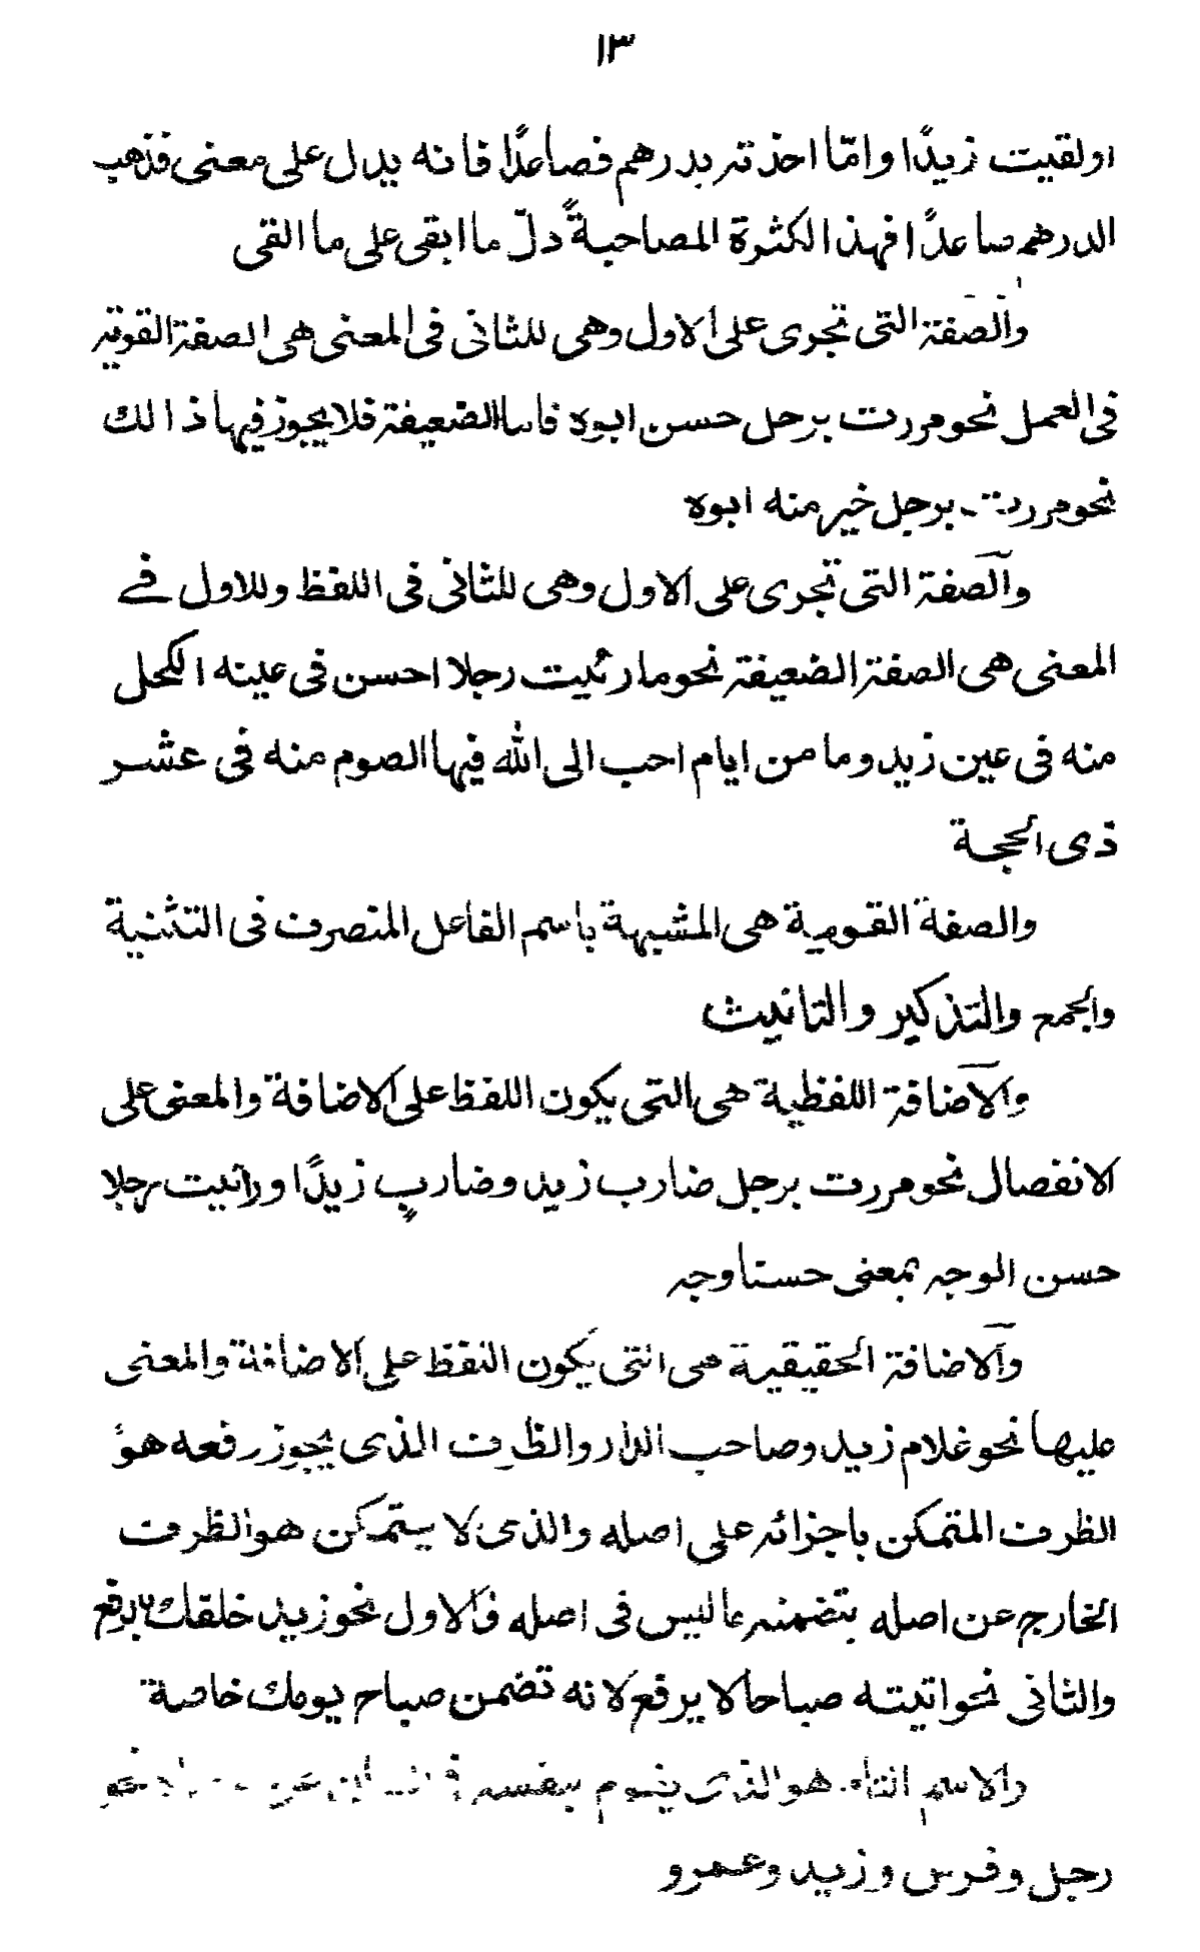 ١٣
اولقيت زيدًا وامّا اخذته بدرهم فصاعدًا فانه يدل على معنى فذهب
الدرهم صاعدًا فهذا الكثرة المصاحبةً دلّ ما ابقى على ما القى
والصفة التى تجرى على الاول وهى للثانى فى المعنى هى الصفة القوية
فى العمل نحو مررت برجل حسن ابوه فاما الضعيفة فلا يجوز فيها ذالك
نحو مررت برجل خير منه ابوه
والصفة التى تجرى على الاول وهى للثانى فى اللفظ وللاول فے
المعنى هى الصفة الضعيفة نحو ما رئيت رجلا احسن فى عينه الكحل
منه فى عين زيد وما من ايام احب الى الله فيها الصوم منه فى عشر
ذى الحجة
والصفة القوية هى المشبهة باسم الفاعل المتصرف فى التثنية
والجمع والتذكير والتانيث
والاضافة اللفظية هى التى يكون اللفظ على الاضافة والمعنى على
الانفصال نحو مررت برجل ضارب زيد وضاربٍ زيدًا ورائيت رجلا
حسن الوجه بمعنى حسنا وجه
والاضافة الحقيقية هى التى يكون اللفظ على الاضافة والمعنى
عليها نحو غلام زيد وصاحب الدار والظرف الذى يجوز رفعه هو
الظرف المتمكن باجزائه على اصله والذى لا يتمكن هو الظرف
الخارج عن اصله بتضمنه ما ليس فى اصله فالاول نحو زيد خلفك بالرفع
والثانى نحو اتيته صباحا لا يرفع لانه تضمن صباح يومك خاصة
والاسم التام هو الذى يقوم بنفسه فى عن نحو
رجل وفرس وزيد وعمرو